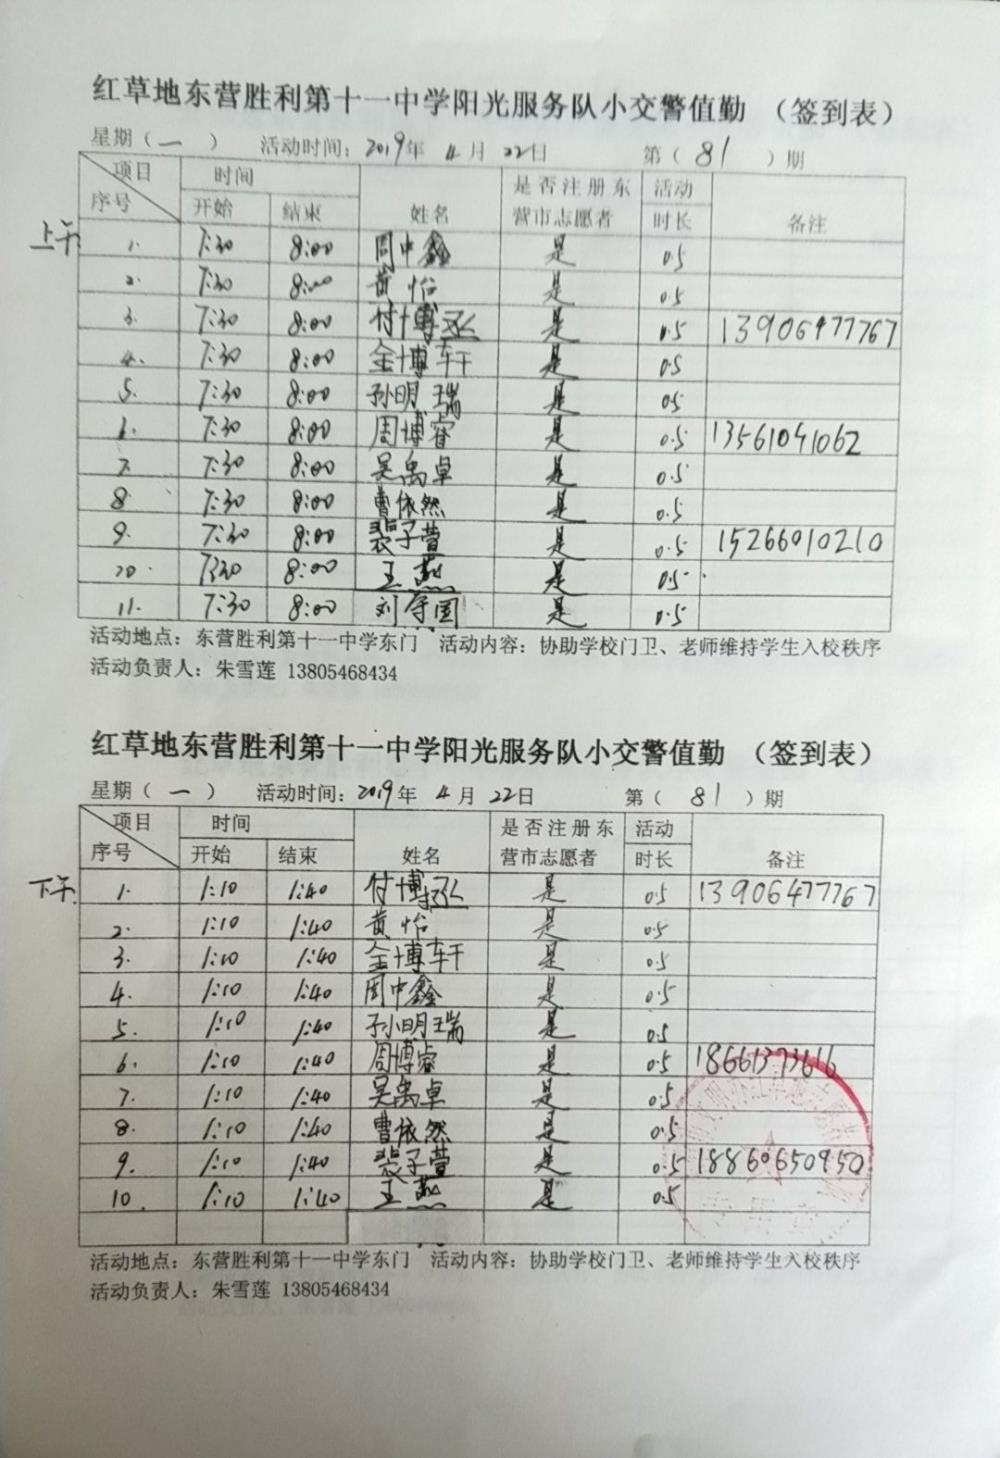 红草地东营胜利第十一中学阳光服务队小交警值勤 （签到表）
星期（一 ） 活动时间：2019年 4 月 22日 第（ 81 ）期
项目 时间 姓名 是否注册东营市志愿者 活动时长 备注
序号 开始 结束
上午
1. 7:30 8:00 周中鑫 是 0.5
2. 7:30 8:00 黄怡 是 0.5
3. 7:30 8:00 付博 是 0.5 13906477767
4. 7:30 8:00 金博轩 是 0.5
5. 7:30 8:00 孙明瑞 是 0.5
6. 7:30 8:00 周博睿 是 0.5 13561041062
7. 7:30 8:00 吴禹卓 是 0.5
8 7:30 8:00 曹依然 是 0.5
9. 7:30 8:00 裴子萱 是 0.5 15266010210
10. 7:30 8:00 王燕 是 0.5
11. 7:30 8:00 刘守国 是 0.5
活动地点：东营胜利第十一中学东门 活动内容：协助学校门卫、老师维持学生入校秩序
活动负责人：朱雪莲 13805468434
红草地东营胜利第十一中学阳光服务队小交警值勤 （签到表）
星期（ 一 ） 活动时间：2019年 4 月 22日 第（ 81 ）期
项目 时间 姓名 是否注册东营市志愿者 活动时长 备注
序号 开始 结束
下午
1. 1:10 1:40 付博 是 0.5 13906477767
2. 1:10 1:40 黄怡 是 0.5
3. 1:10 1:40 金博轩 是 0.5
4. 1:10 1:40 周中鑫 是 0.5
5. 1:10 1:40 孙明瑞 是 0.5
6. 1:10 1:40 周博睿 是 0.5 18661373616
7. 1:10 1:40 吴禹卓 是 0.5
8. 1:10 1:40 曹依然 是 0.5
9. 1:10 1:40 裴子萱 是 0.5 18860650950
10. 1:10 1:40 王燕 是 0.5
活动地点：东营胜利第十一中学东门 活动内容：协助学校门卫、老师维持学生入校秩序
活动负责人：朱雪莲 13805468434